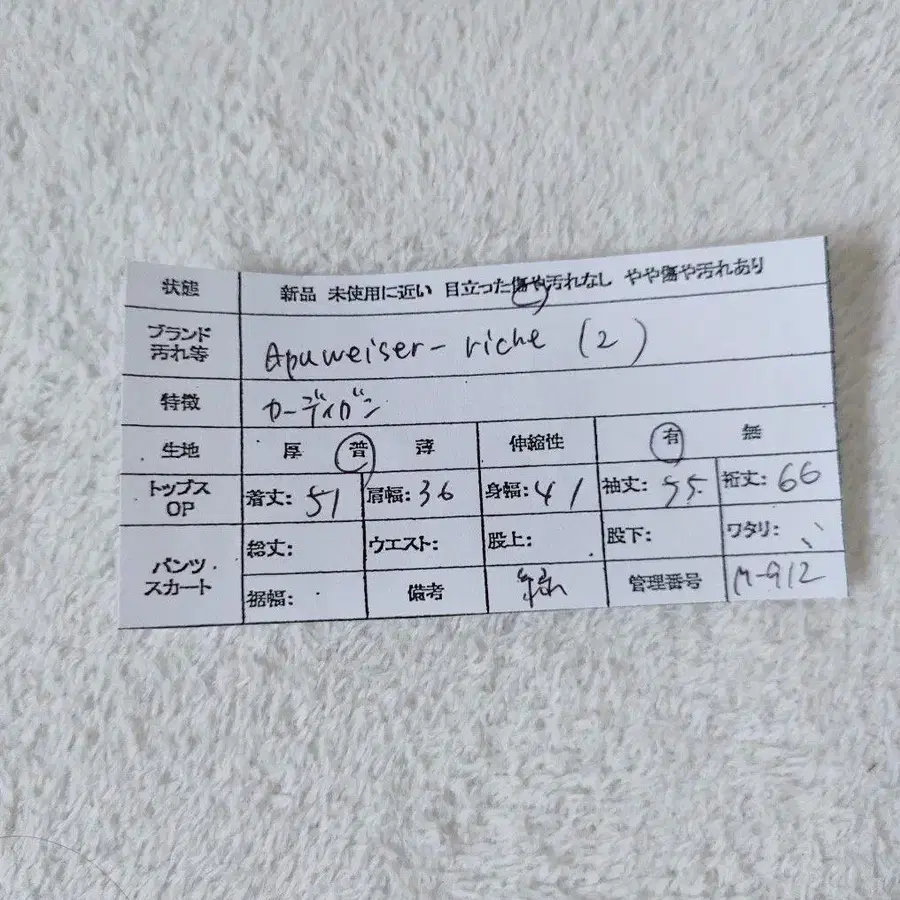 状態 新品 未使用に近い 目立った傷や汚れなし やや傷や汚れあり
ブランド
汚れ等 Apuweiser-riche (2)
特徴 カーディガン
生地 厚 普 薄 伸縮性 有 無
トップス
OP 着丈: 51 肩幅: 36 身幅: 41 袖丈: 55 裄丈: 66
パンツ
スカート 総丈: ウエスト: 股上: 股下: ワタリ:
裾幅: 備考 緑 管理番号 M-912